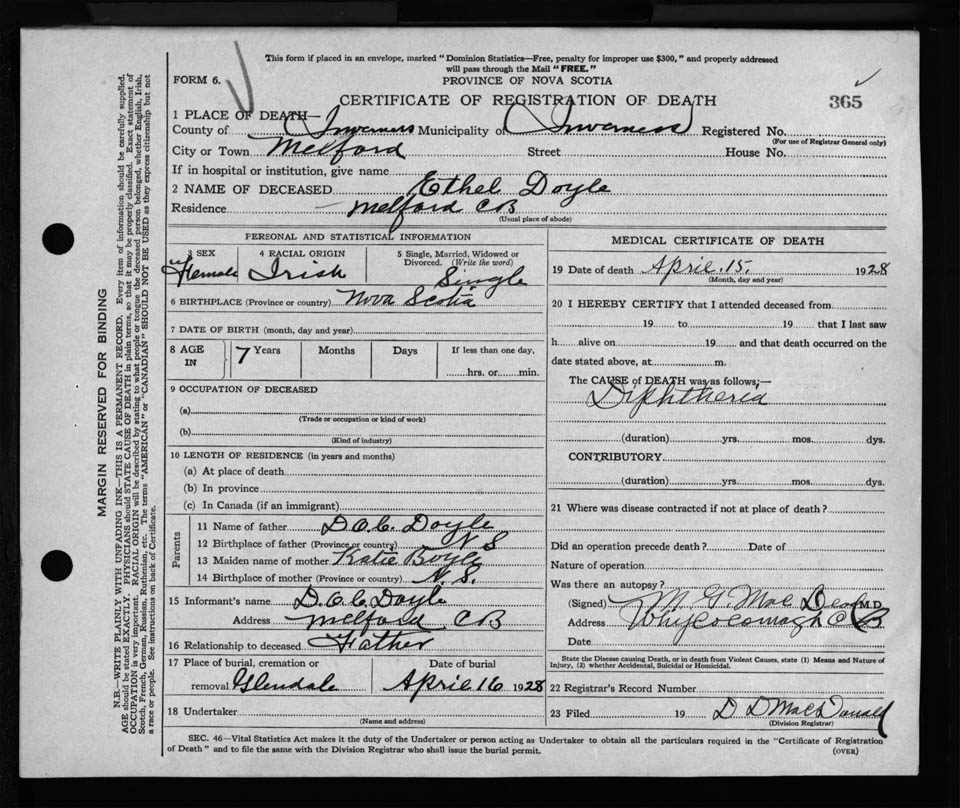 This form if placed in an envelope, marked "Dominion Statistics—Free, penalty for improper use $300," and properly addressed
will pass through the Mail "FREE."
FORM 6.
PROVINCE OF NOVA SCOTIA
CERTIFICATE OF REGISTRATION OF DEATH
365
1 PLACE OF DEATH—
County of Inverness Municipality of Inverness Registered No.
(For use of Registrar General only)
City or Town Melford Street House No.
If in hospital or institution, give name
2 NAME OF DECEASED Ethel Doyle
Residence Melford CB
(Usual place of abode)
PERSONAL AND STATISTICAL INFORMATION
3 SEX 4 RACIAL ORIGIN 5 Single, Married, Widowed or
Divorced. (Write the word)
Female Irish Single
6 BIRTHPLACE (Province or country) Nova Scotia
7 DATE OF BIRTH (month, day and year)
8 AGE IN 7 Years Months Days If less than one day,
hrs. or min.
9 OCCUPATION OF DECEASED
(a)
(Trade or occupation or kind of work)
(b)
(Kind of industry)
10 LENGTH OF RESIDENCE (in years and months)
(a) At place of death
(b) In province
(c) In Canada (if an immigrant)
Parents
11 Name of father D. A. C. Doyle
12 Birthplace of father (Province or country) N S
13 Maiden name of mother Katie Boyle
14 Birthplace of mother (Province or country) N. S.
15 Informant's name D. A. C. Doyle
Address Melford CB
16 Relationship to deceased Father
17 Place of burial, cremation or Date of burial
removal Glendale April 16 1928
18 Undertaker
(Name and address)
MEDICAL CERTIFICATE OF DEATH
19 Date of death April 15. 1928
(Month, day and year)
20 I HEREBY CERTIFY that I attended deceased from
19 to 19 that I last saw
h alive on 19 and that death occurred on the
date stated above, at m.
The CAUSE of DEATH was as follows;—
Diphtheria
(duration) yrs. mos. dys.
CONTRIBUTORY
(duration) yrs. mos. dys.
21 Where was disease contracted if not at place of death?
Did an operation precede death? Date of
Nature of operation
Was there an autopsy?
(Signed) M G Mac M.D.
Address Whycocomagh C B
Date
State the Disease causing Death, or in death from Violent Causes, state (1) Means and Nature of
Injury, (2) whether Accidental, Suicidal or Homicidal.
22 Registrar's Record Number
23 Filed 19 D D MacDonald
(Division Registrar)
SEC. 46—Vital Statistics Act makes it the duty of the Undertaker or person acting as Undertaker to obtain all the particulars required in the "Certificate of Registration
of Death" and to file the same with the Division Registrar who shall issue the burial permit. (OVER)
MARGIN RESERVED FOR BINDING
N.B.—WRITE PLAINLY WITH UNFADING INK—THIS IS A PERMANENT RECORD. Every item of information should be carefully supplied.
AGE should be stated EXACTLY. PHYSICIANS should STATE CAUSE OF DEATH in plain terms, so that it may be properly classified. Exact statement of
OCCUPATION is very important. RACIAL ORIGIN will be described by stating to what people or tongue the deceased person belonged, whether English, Irish,
Scotch, French, German, Russian, Ruthenian, etc. The terms "AMERICAN" or "CANADIAN" SHOULD NOT BE USED as they express citizenship but not
a race or people. See instructions on back of Certificate.